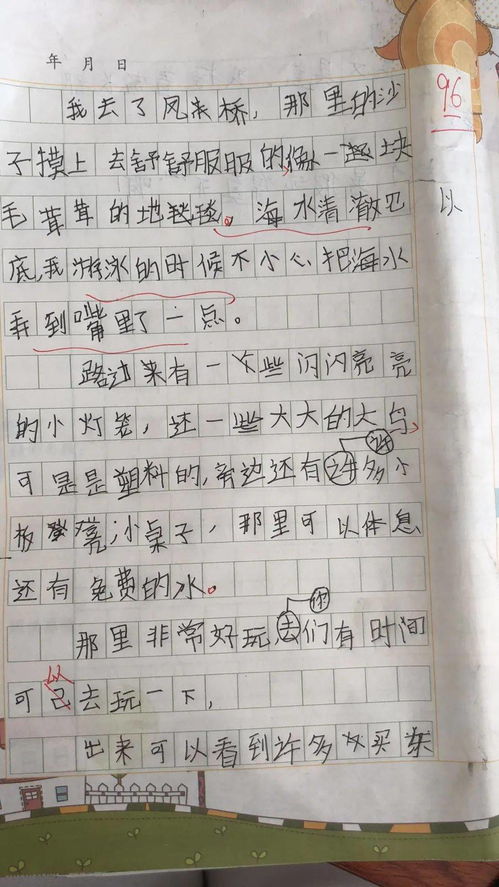 年 月 日
96
我去了风来桥，那里的沙
子摸上去舒舒服服的像一块
毛茸茸的地毯。海水清澈见
底，我游泳的时候不小心把海水
弄到嘴里了一点。
以
路过来有一些闪闪亮亮
的小灯笼，还一些大大的大鸟
可是是塑料的，旁边还有许多小
板凳小桌子，那里可以体息
还有免费的水。
那里非常好玩你们有时间
可以去玩一下，
出来可以看到许多买东